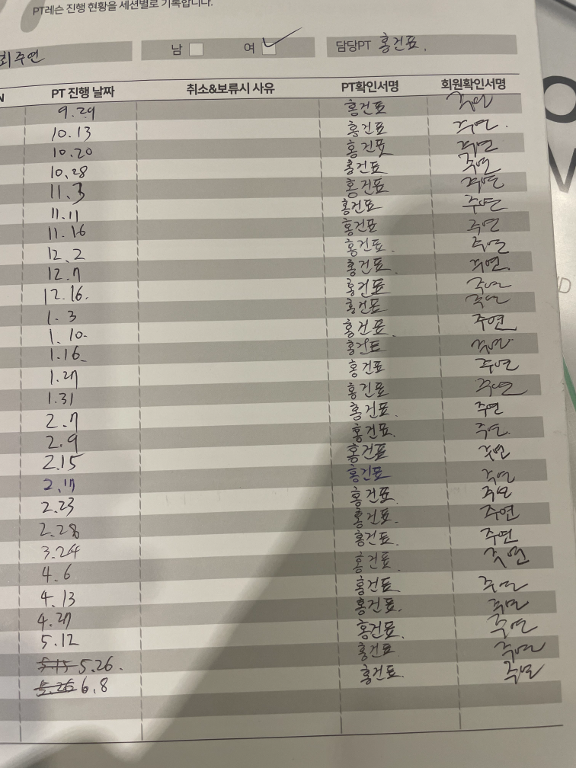 PT레슨 진행 현황을 세션별로 기록합니다.
최주연 남 여 ✓ 담당PT 홍건표.
N PT 진행 날짜 취소&보류시 사유 PT확인서명 회원확인서명
9.29 홍건표 주연
10.13 홍건표 주연.
10.20 홍건표 주연
10.28 홍건표 주연
11.3 홍건표 주연
11.11 홍건표 주연
11.16 홍건표 주연
12.2 홍건표. 주연
12.7 홍건표. 주연
12.16. 홍건표 주연
1.3 홍건표 주연
1.10. 홍건표. 주연
1.16. 홍건표 주연
1.27 홍건표 주연
1.31 홍건표 주연
2.7 홍건표. 주연
2.9 홍건표. 주연.
2.15 홍건표 주연
2.17 홍건표 주연
2.23 홍건표 주연
2.28 홍건표. 주연
3.24 홍건표. 주연
4.6 홍건표. 주연
4.13 홍건표 주연
4.27 홍건표. 주연
5.12 홍건표. 주연
5.15 5.26. 홍건표 주연
5.26 6.8 홍건표. 주연